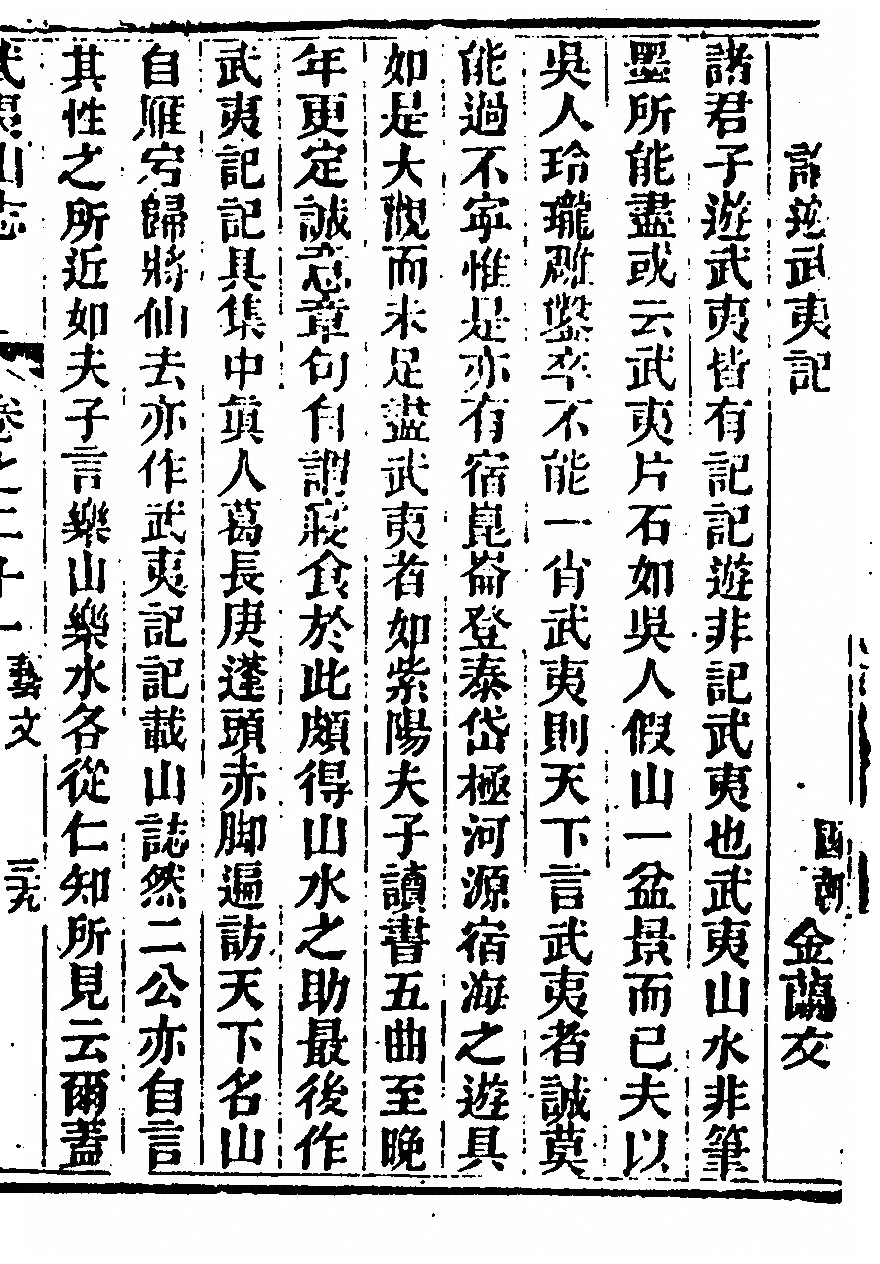 諸遊武夷記
國朝 金蘭友
諸君子遊武夷皆有記記遊非記武夷也武夷山水非筆
墨所能盡或云武夷片石如吳人假山一盆景而已夫以
吳人玲瓏雕鑿卒不能一肖武夷則天下言武夷者誠莫
能過不寧惟是亦有宿崑崙登泰岱極河源宿海之遊具
如是大觀而未足盡武夷者如紫陽夫子讀書五曲至晚
年更定誠意章句自謂寢食於此頗得山水之助最後作
武夷記記具集中眞人葛長庚蓬頭赤脚遍訪天下名山
自雁宕歸將仙去亦作武夷記記載山誌然二公亦自言
其性之所近如夫子言樂山樂水各從仁知所見云爾蓋
武夷山志 卷之二十一 藝文 三九